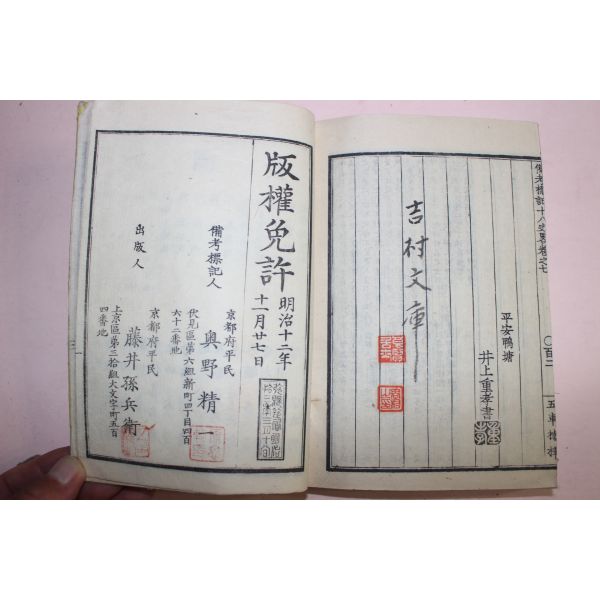 備考標記十八史略卷之七
〇百二
五車樓梓
平安鴨塘
井上重孝書
吉村文庫
版權免許
明治十二年
十一月廿七日
備考標記人
京都府平民
奥野精一
伏見區第六組新町四丁目四百
六十二番地
出版人
京都府平民
藤井孫兵衛
上京區第三拾組大文字町五百
四番地